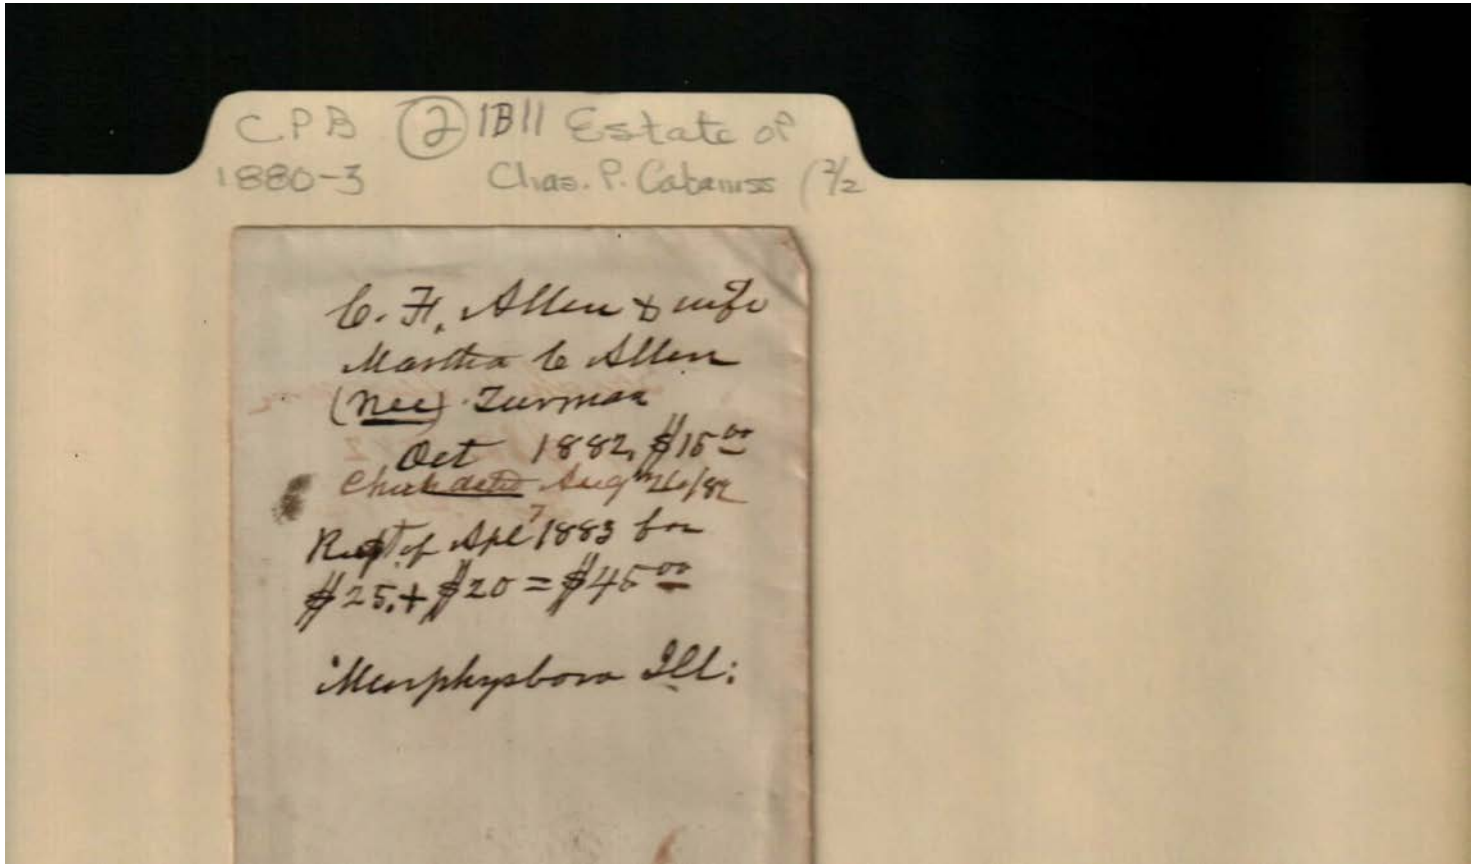 CPB ② 1B11 Estate of
1880-3 Chas. P. Cabaniss (2/2
C. F. Allen & wife
Martha C Allen
(nee) Turman
Oct 1882, $15 00
Check dated Aug 26/82
Rcpt of Apl 7 1883 for
$25. + $20 = $45 00
Murphysboro Ill: